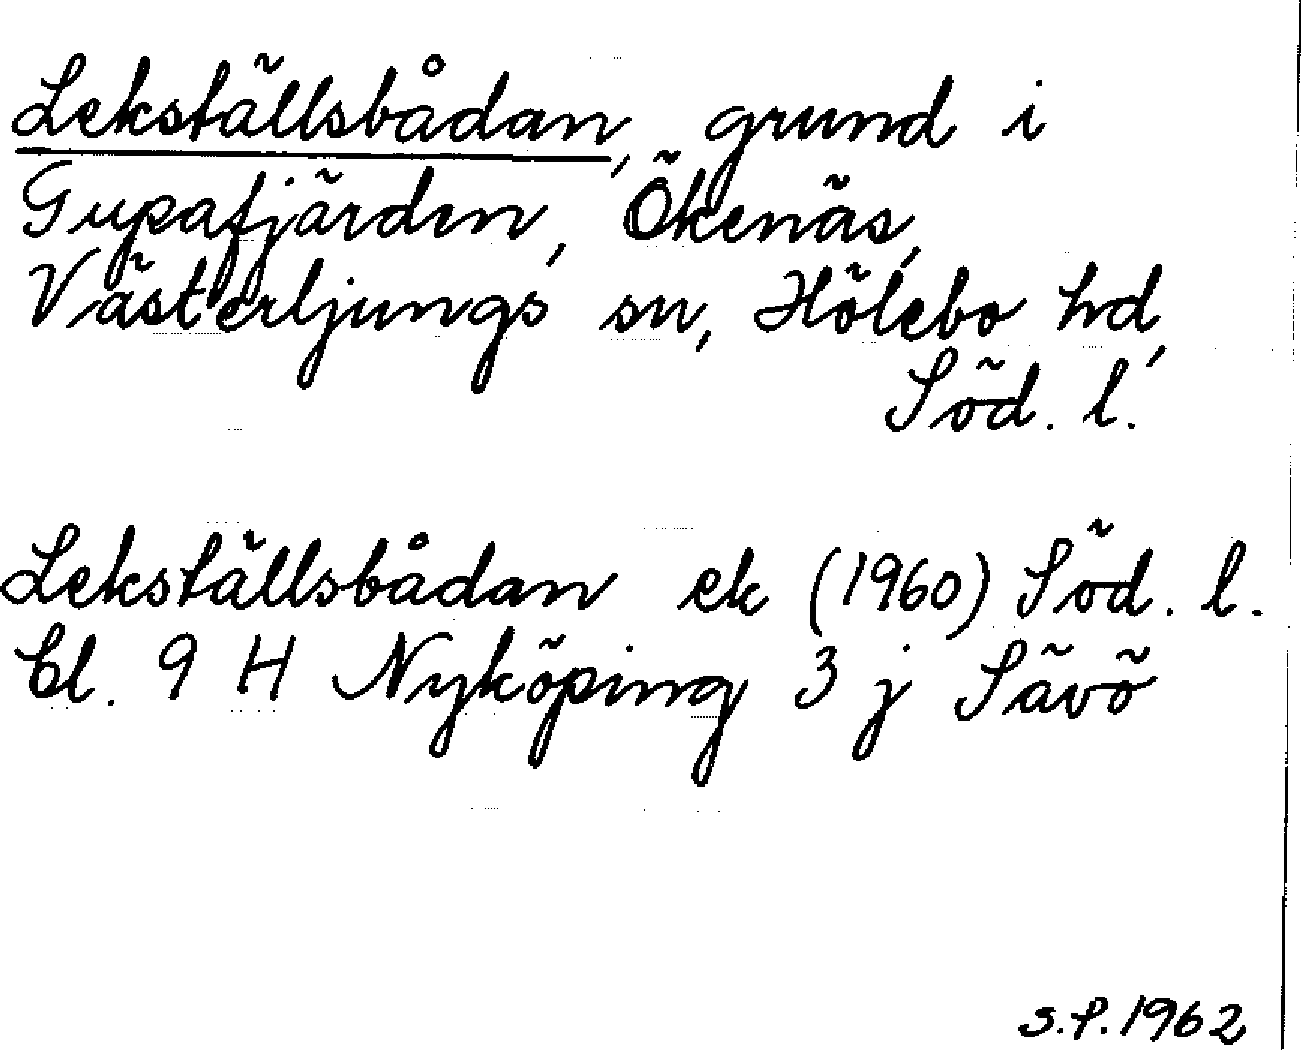 Lekställsbådan, grund i
Gupafjärden, Ökenäs,
Västerljungs sn, Hölebo hd,
Söd. l.
Lekställsbådan ek (1960) Söd. l.
bl. 9 H Nyköping 3 j Sävö
S.P. 1962